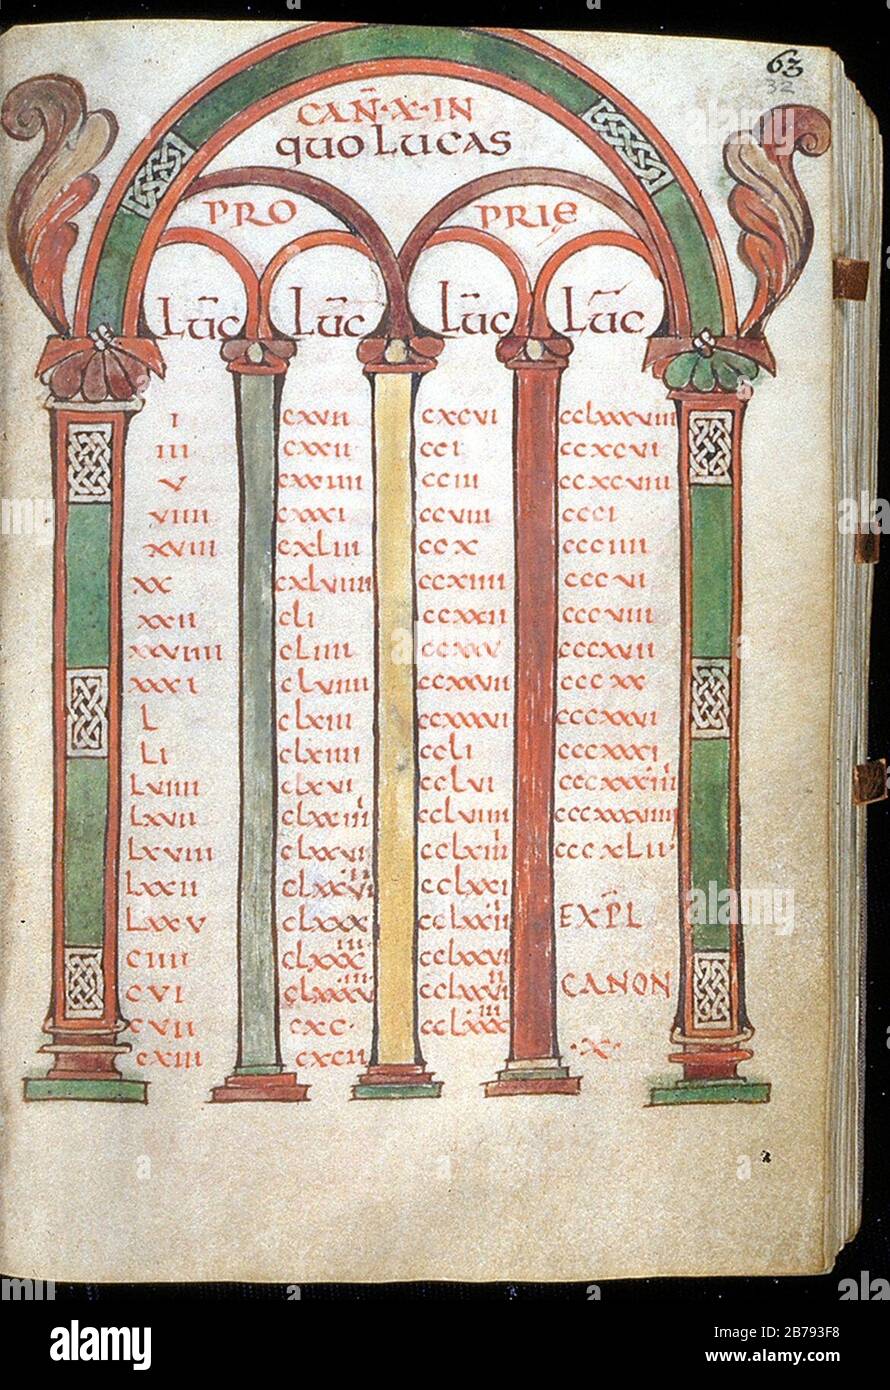 63
32
CAN̄·X·IN
QUO LUCAS
PRO PRIE
LUC̄ LUC̄ LUC̄ LUC̄
I CXVII CXCVI CCLXXXVIII
III CXXII CCI CCXCVI
V CXXIIII CCIII CCXCVIII
VIIII CXXXI CCVIII CCCI
XVIII CXLIII CCX CCCIIII
XX CXLVIIII CCXIIII CCCVI
XXII CLI CCXXII CCCVIII
XXVIIII CLIIII CCXXV CCCXVII
XXXI CLVIIII CCXXVII CCCXX
L CLXIII CCXXXVI CCCXXVI
LI CLXIIII CCLI CCCXXXI
LVIIII CLXVI CCLVI CCCXXXIII
LXVII CLXXIII CCLVIIII CCCXXXVIIII
LXVIII CLXXVI CCLXIII CCCXLII
LXXII CLXXVIII CCLXXI
LXXV CLXXX CCLXXII EXPL̄
CIIII CLXXXIII CCLXXVI
CVI CLXXXVIII CCLXXVIII CANON
CVII CXC CCLXXXIII ·X·
CXIII CXCII
alamy
Image ID: 2B793F8
www.alamy.com